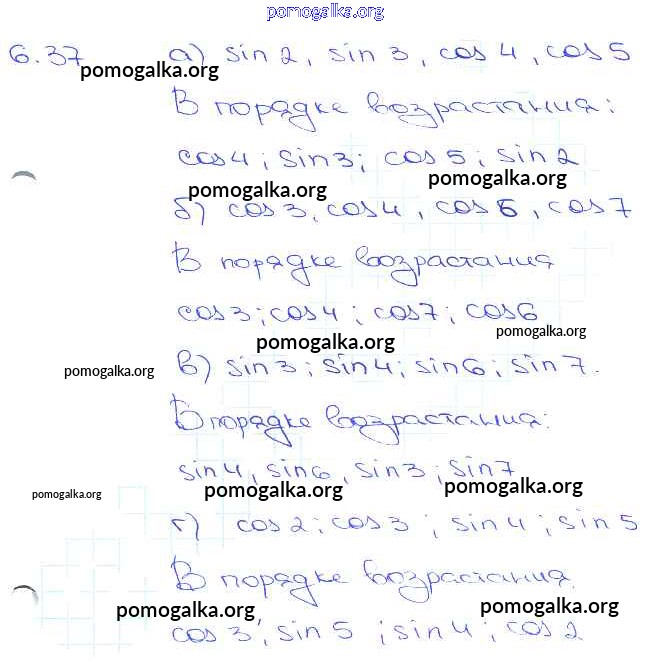 pomogalka.org
6.37 а) sin 2, sin 3, cos 4, cos 5
pomogalka.org
В порядке возрастания:
cos 4; sin 3; cos 5; sin 2
pomogalka.org pomogalka.org
б) cos 3, cos 4, cos 6, cos 7
В порядке возрастания
cos 3; cos 4; cos 7; cos 6
pomogalka.org
pomogalka.org
pomogalka.org
в) sin 3; sin 4; sin 6; sin 7.
В порядке возрастания:
sin 4, sin 6, sin 3; sin 7
pomogalka.org pomogalka.org pomogalka.org
г) cos 2; cos 3; sin 4; sin 5
В порядке возрастания.
pomogalka.org pomogalka.org
cos 3; sin 5; sin 4; cos 2